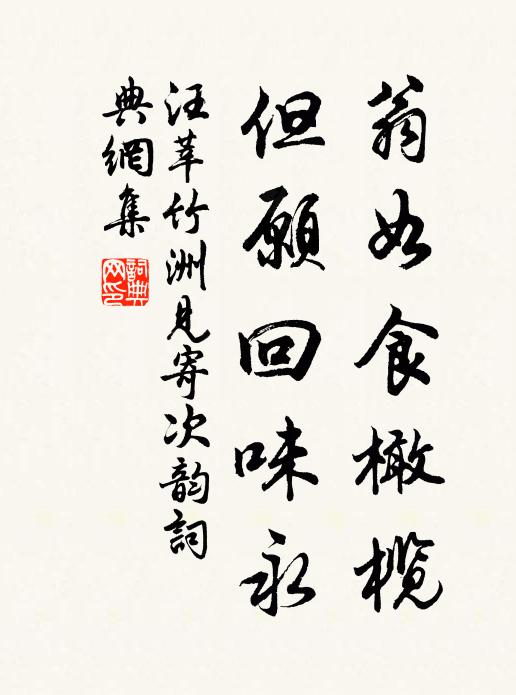 翁如食橄榄
但愿回味永
汪莘竹洲見寄次韵詞
典網集
詞典网印